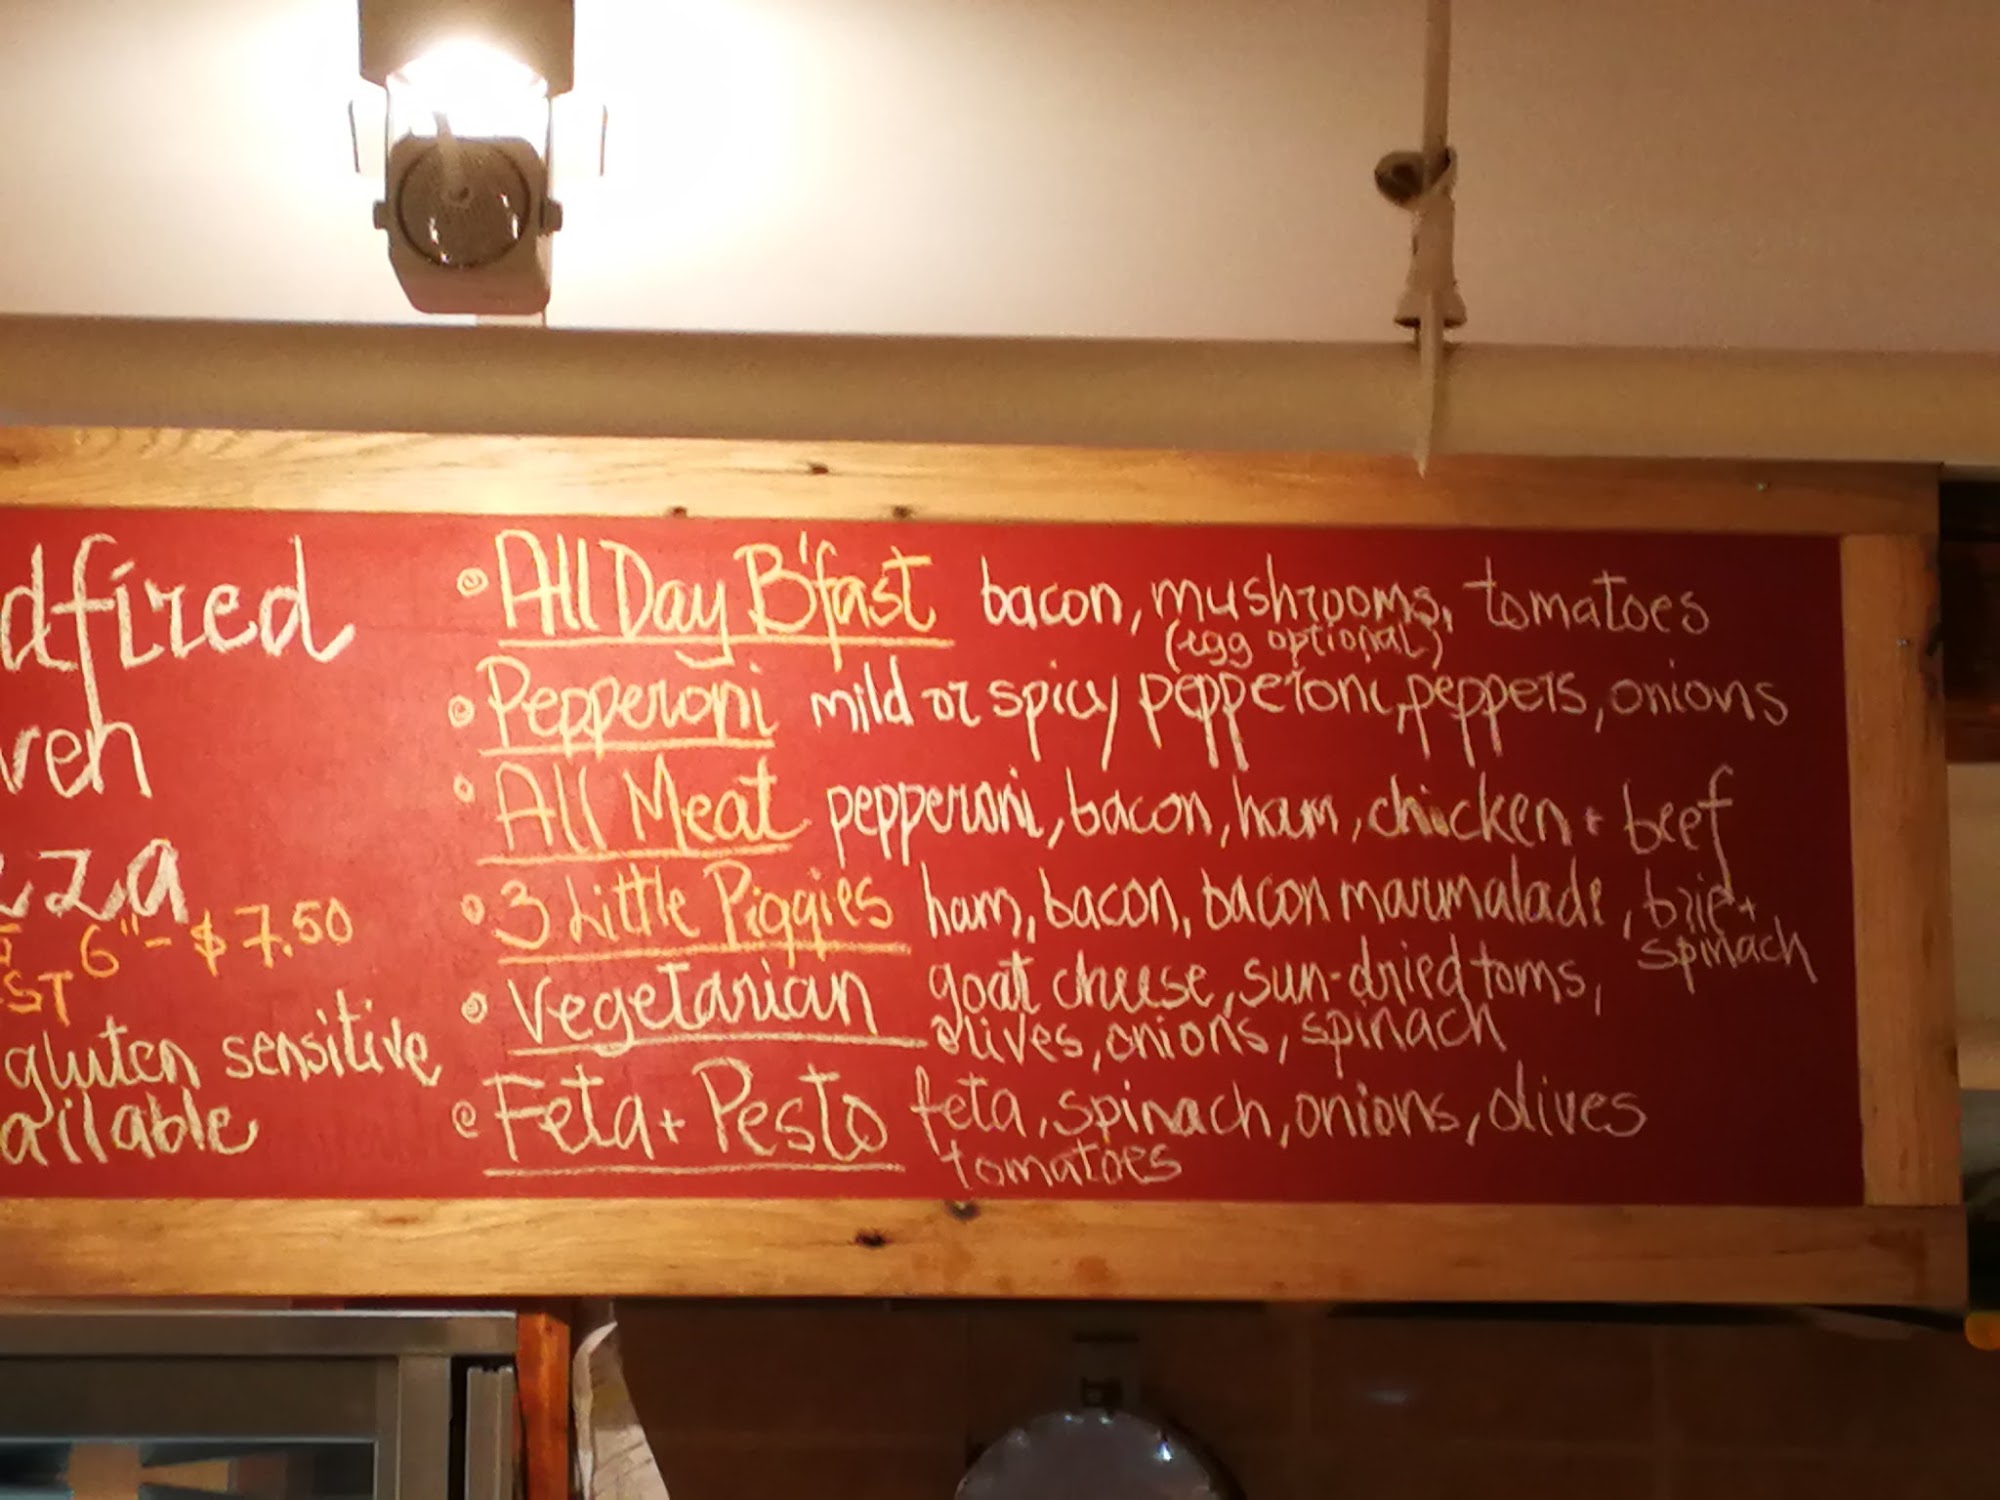 dfired
ven
zza
6" - $7.50
ST
gluten sensitive
ailable
All Day B'fast bacon, mushrooms, tomatoes
(egg optional)
Pepperoni mild or spicy pepperoni, peppers, onions
All Meat pepperoni, bacon, ham, chicken + beef
3 Little Piggies ham, bacon, bacon marmalade, brie +
spinach
Vegetarian goat cheese, sun-dried toms,
olives, onions, spinach
Feta + Pesto feta, spinach, onions, olives
tomatoes